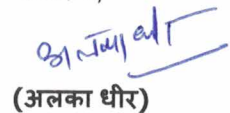 (अलका धीर)